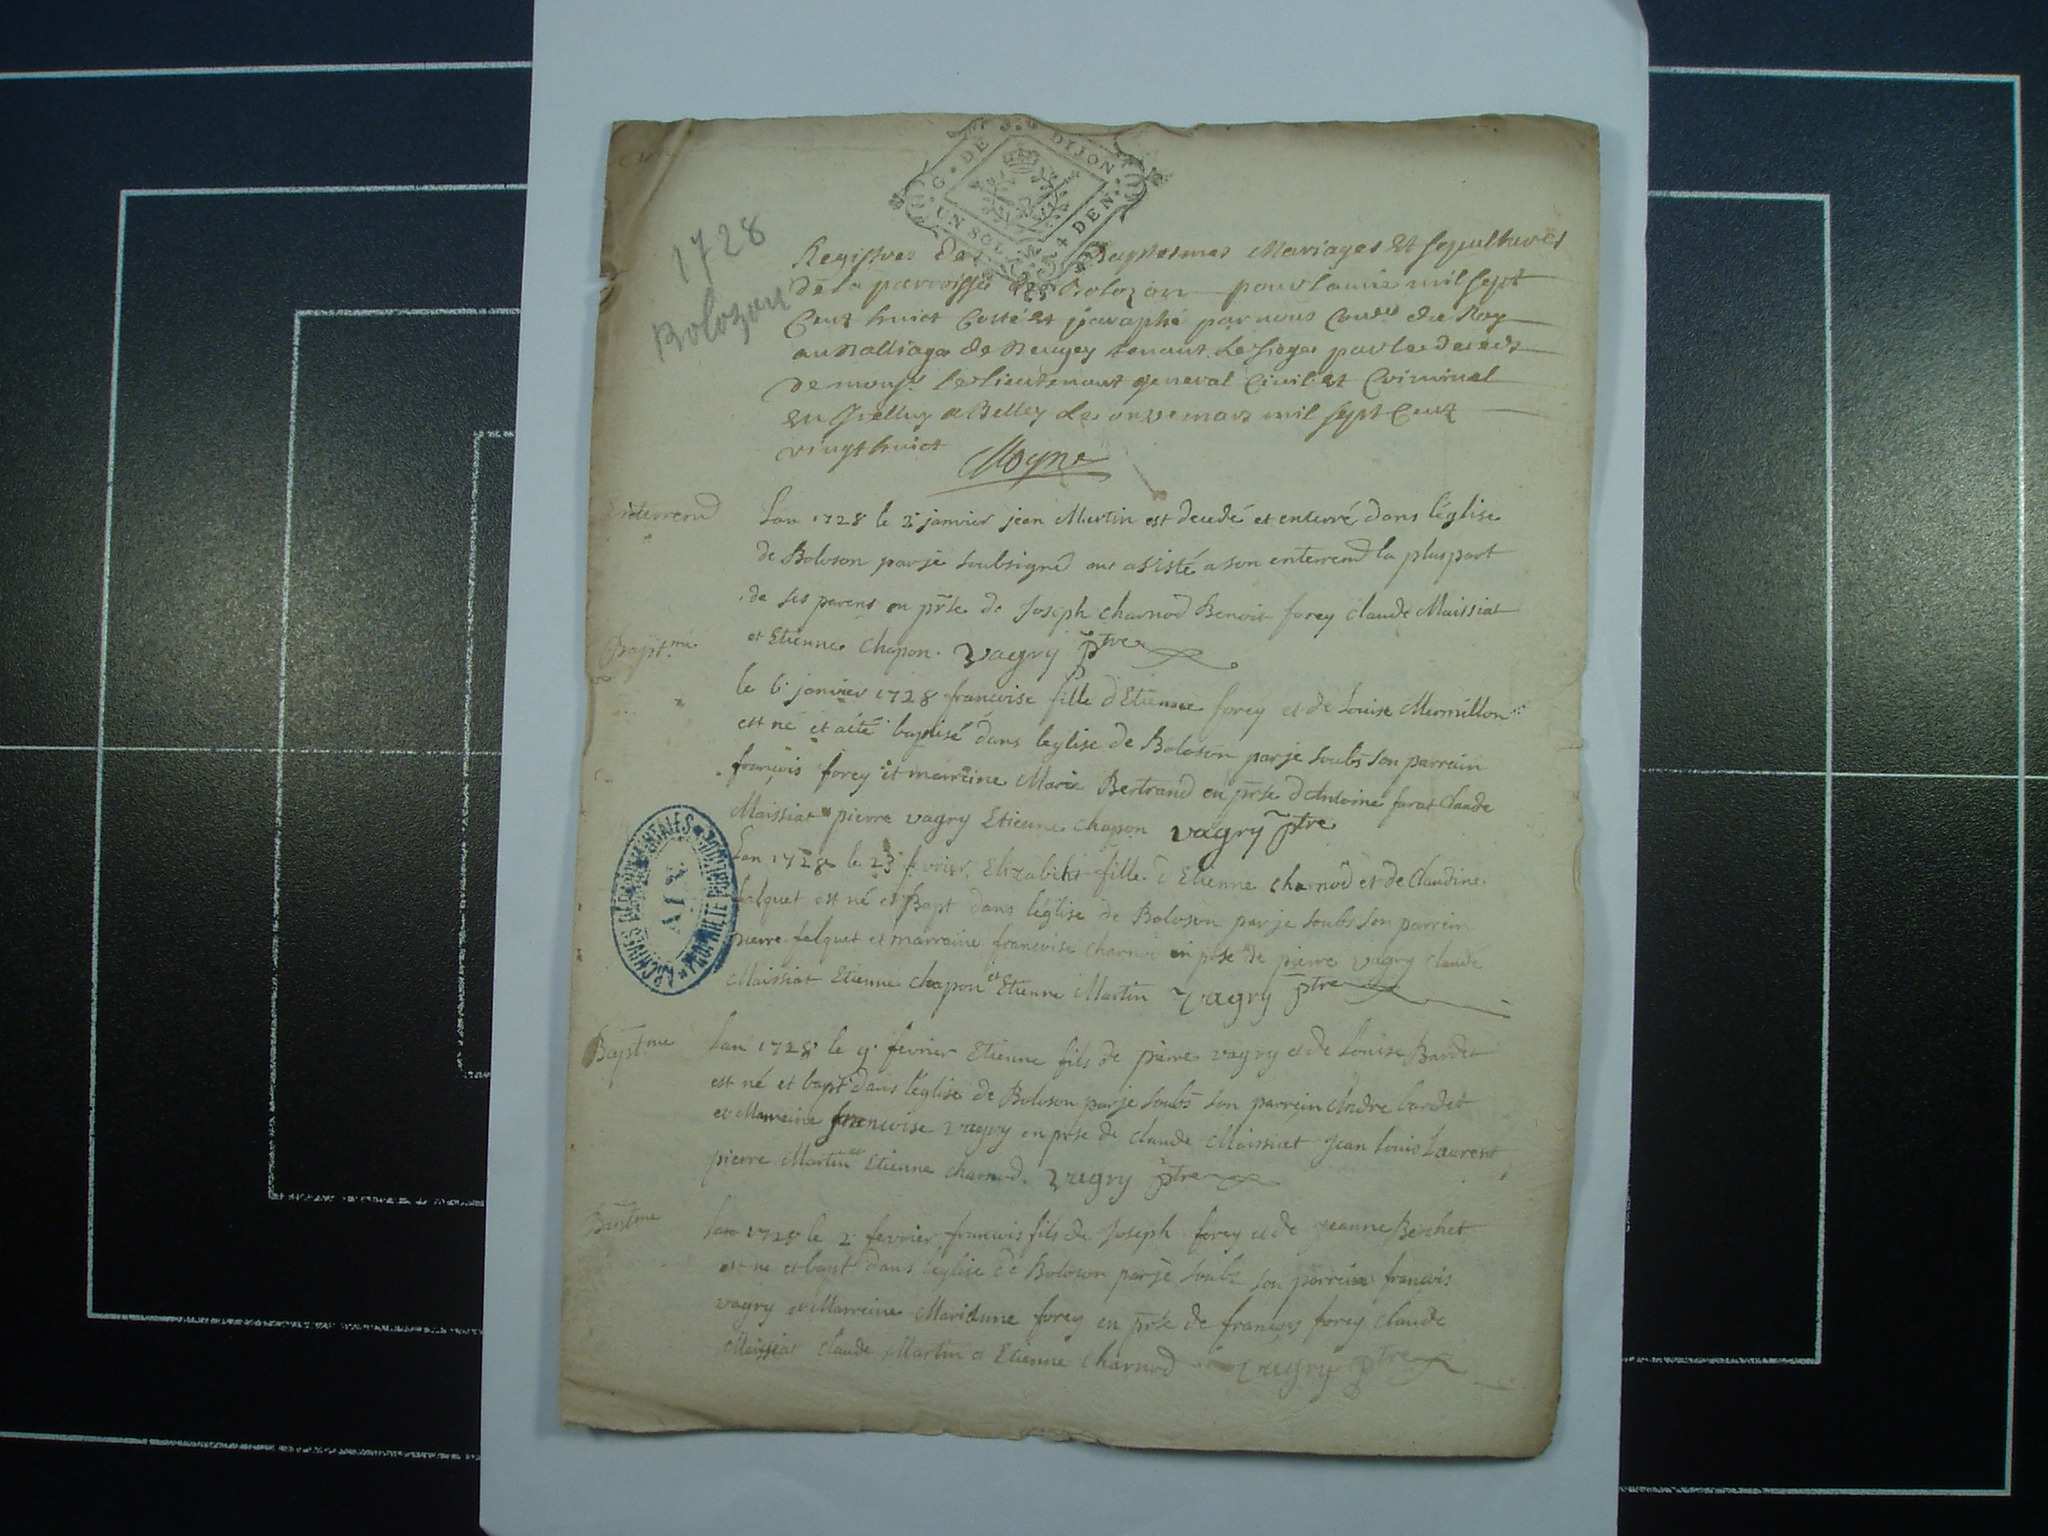 G. DE DIJON
UN SOL 4 DEN.
1728
Bolozon
Registres des Baptesmes Mariages Et sepultures
de la parroisse de Bolozon pour lannée mil sept
Cent huict Cotté Et paraphé par nous Conser du Roy
au Balliage de Beugey tenant Le siege par le deceds
de monsr le lieutenant general Civil et Criminel
A Belley Le onze mars mil sept Cent
vingt huict Moyne
Enterremd
Lan 1728 le 2 janvier jean Martin est decedé et enterré dans léglise
de Boloson par je soubsigné ont asisté a son enterremd la pluspart
de ses parens en prse de Joseph charnod Benoit forey claude Maissiat
et Etienne chapon. vagry ptre
Baptme
le 6 janvier 1728 francoise fille d'Etienne forey et de Louise Mermillon
est né et aété baptisé dans leglise de Boloson par je soubs son parrain
françois forey et marreine Marie Bertrand en prse d'Antoine farat claude
Maissiat pierre vagry Etienne chapon vagry ptre
Lan 1728 le 23 fevrier Elizabeht fille d'Etienne charnod et de Claudine
falquet est né et Bapt dans léglise de Boloson par je soubs son parrein
pierre falquet et marraine francoise charnod en prse de pierre vagry claude
Maissiat Etienne chapon et Etienne Martin vagry ptre
Baptme
Lan 1728 le 9 fevrier Etienne fils de pierre vagry et de Louise Bardet
est né et bapt dans léglise de Boloson par je soubs son parrein Andre bardet
et Marreine francoise vagry en prse de claude Maissiat Jean Louis Laurent
pierre Martin et Etienne charnod. vagry ptre
Baptme
Lan 1728 le 2 fevrier francois fils de Joseph forey et de jeanne Berchet
est ne et bapt dans leglise de Boloson par je soubs son parrein françois
vagry et Marreine forey en prse de françois forey claude
Maissiat claude Martin et Etienne charnod vagry ptre
ARCHIVES DEPARTEMENTALES
AIN
PROPRIETE PUBLIQUE